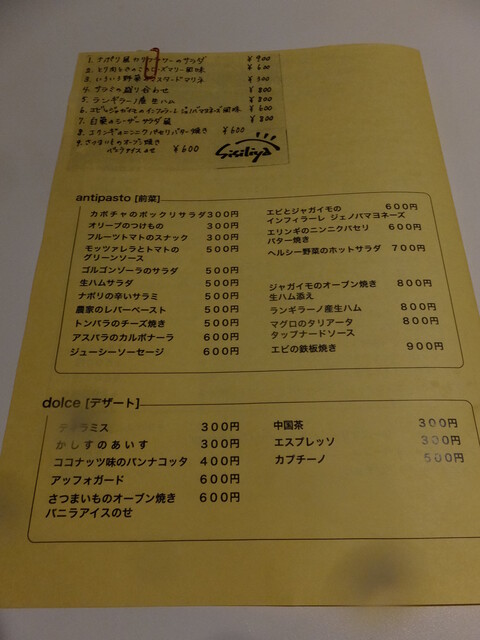 1. ナポリ風カリフラワーのサラダ ¥900
2. とり肉ときのこローズマリー風味 ¥600
3. いろいろ野菜のマスタードマリネ ¥500
4. サラミの盛り合わせ ¥800
5. ランギラーノ産生ハム ¥800
6. エビとジャガイモのインフィラーレ ジェノバマヨネーズ風味 ¥600
7. 白菜のシーザーサラダ風 ¥800
8. エリンギのニンニクパセリバター焼き ¥600
9. さつまいものオーブン焼き
バニラアイスのせ ¥600
Sisiliya
antipasto [前菜]
カボチャのポックリサラダ 300円
オリーブのつけもの 300円
フルーツトマトのスナック 300円
モッツァレラとトマトの 500円
グリーンソース
ゴルゴンゾーラのサラダ 500円
生ハムサラダ 500円
ナポリの辛いサラミ 500円
農家のレバーペースト 500円
トンパラのチーズ焼き 500円
アスパラのカルボナーラ 600円
ジューシーソーセージ 600円
エビとジャガイモの 600円
インフィラーレ ジェノバマヨネーズ
エリンギのニンニクパセリ 600円
バター焼き
ヘルシー野菜のホットサラダ 700円
ジャガイモのオーブン焼き 800円
生ハム添え
ランギラーノ産生ハム 800円
マグロのタリアータ 800円
タップナードソース
エビの鉄板焼き 900円
dolce [デザート]
ティラミス 300円
かしすのあいす 300円
ココナッツ味のパンナコッタ 400円
アッフォガード 600円
さつまいものオーブン焼き 600円
バニラアイスのせ
中国茶 300円
エスプレッソ 300円
カプチーノ 500円